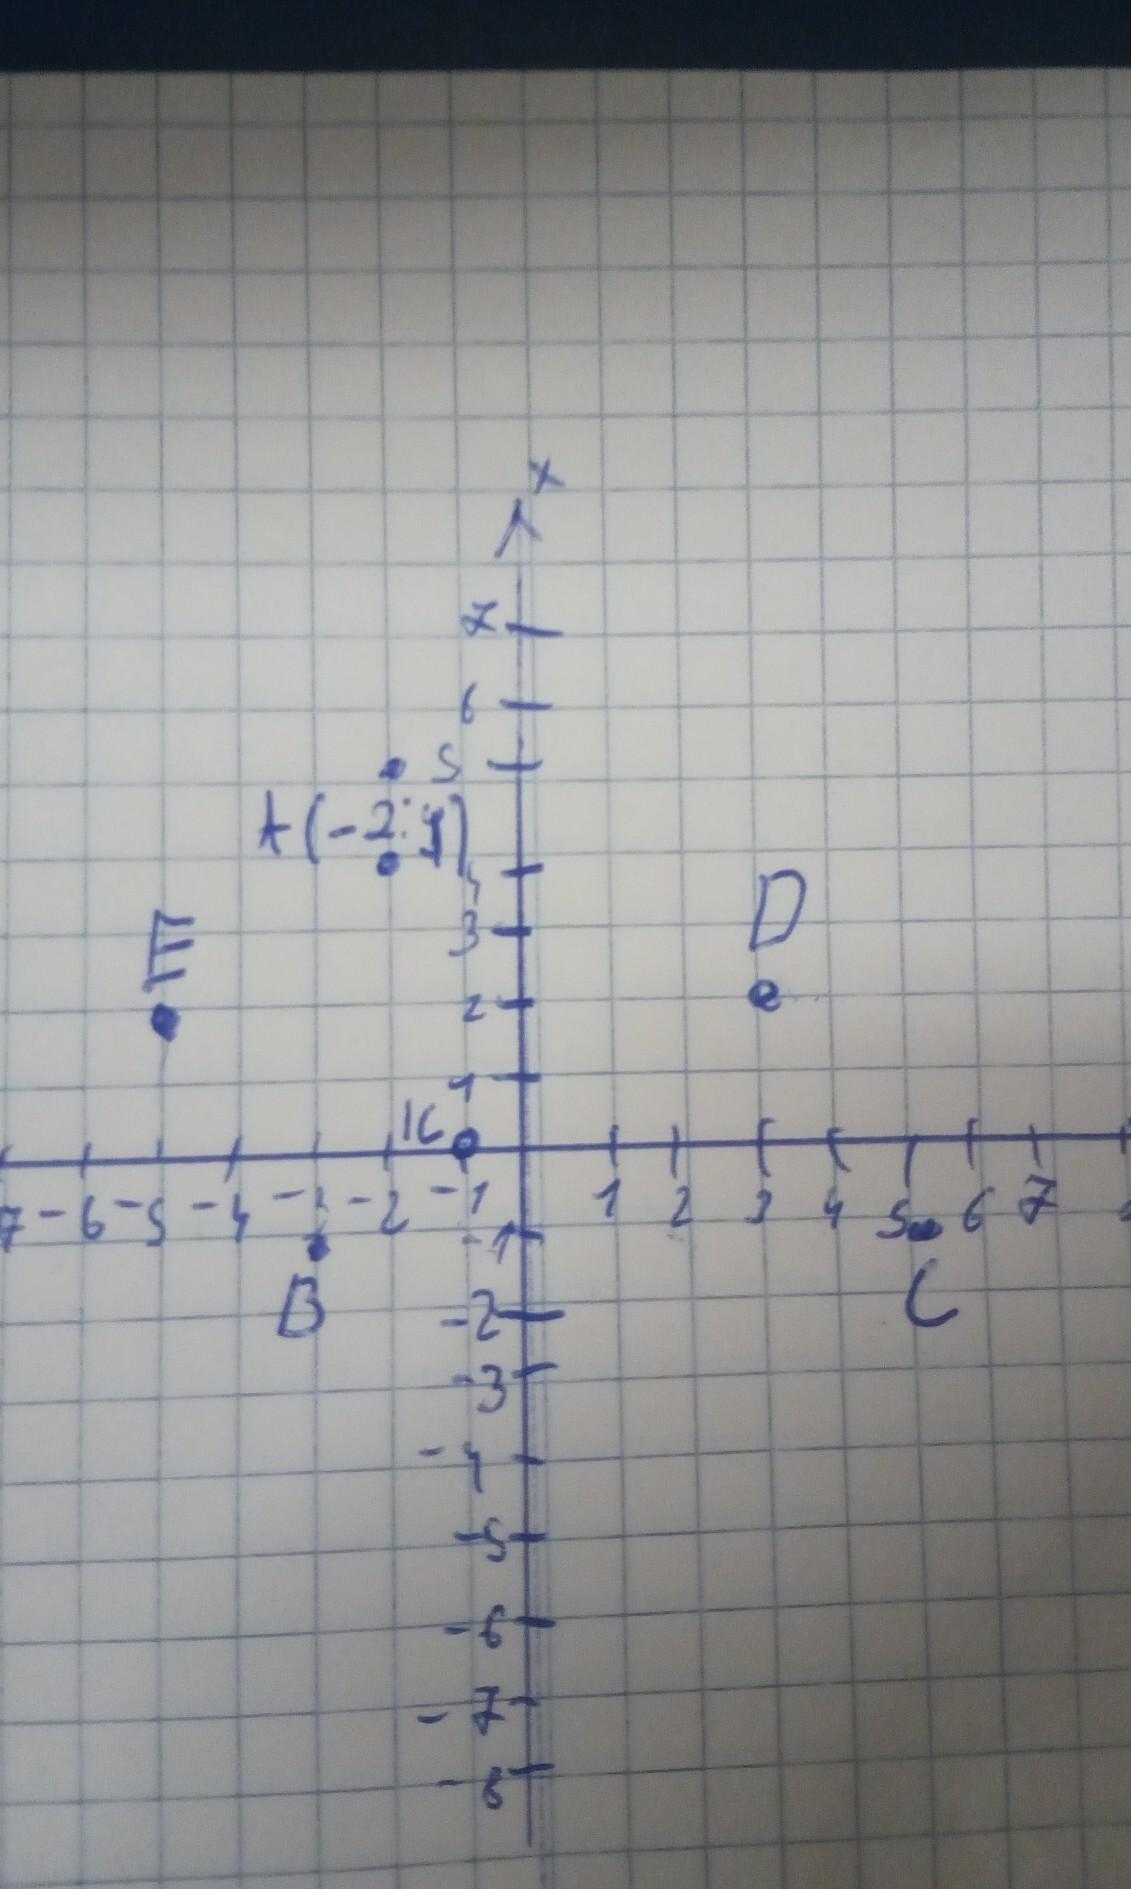 x
7
6
5
A(-2:4)
4
E
3
D
2
1
K
-7 -6 -5 -4 -3 -2 -1 1 2 3 4 5 6 7
-1
B
C
-2
-3
-4
-5
-6
-7
-8